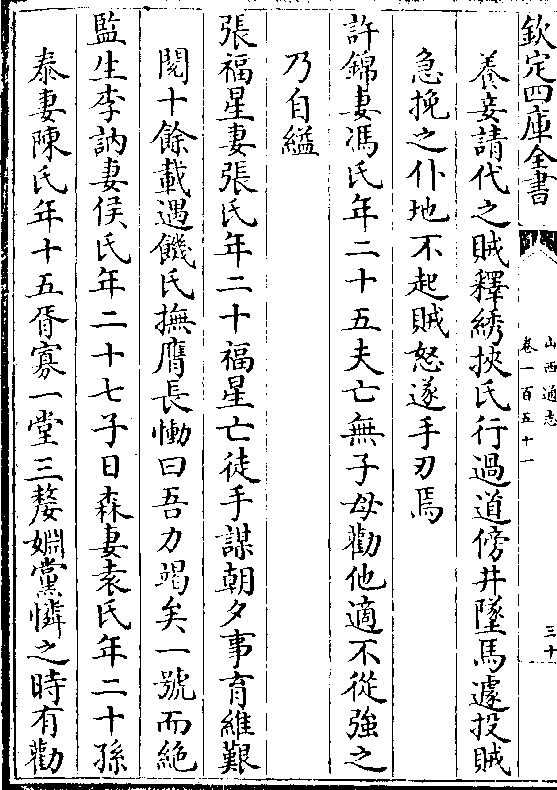 欽定四庫全書
山西通志
卷一百五十一
三十
養妾請代之賊釋綉挾氏行過道傍井墜馬遽投賊
急挽之仆地不起賊怒遂手刃焉
許錦妻馮氏年二十五夫亡無子母勸他適不從強之
乃自縊
張福星妻張氏年二十福星亡徒手謀朝夕事育維艱
閱十餘載遇饑氏撫膺長慟曰吾力竭矣一號而絶
監生李訥妻侯氏年二十七子日森妻袁氏年二十孫
泰妻陳氏年十五胥寡一堂三嫠婣黨憐之時有勸